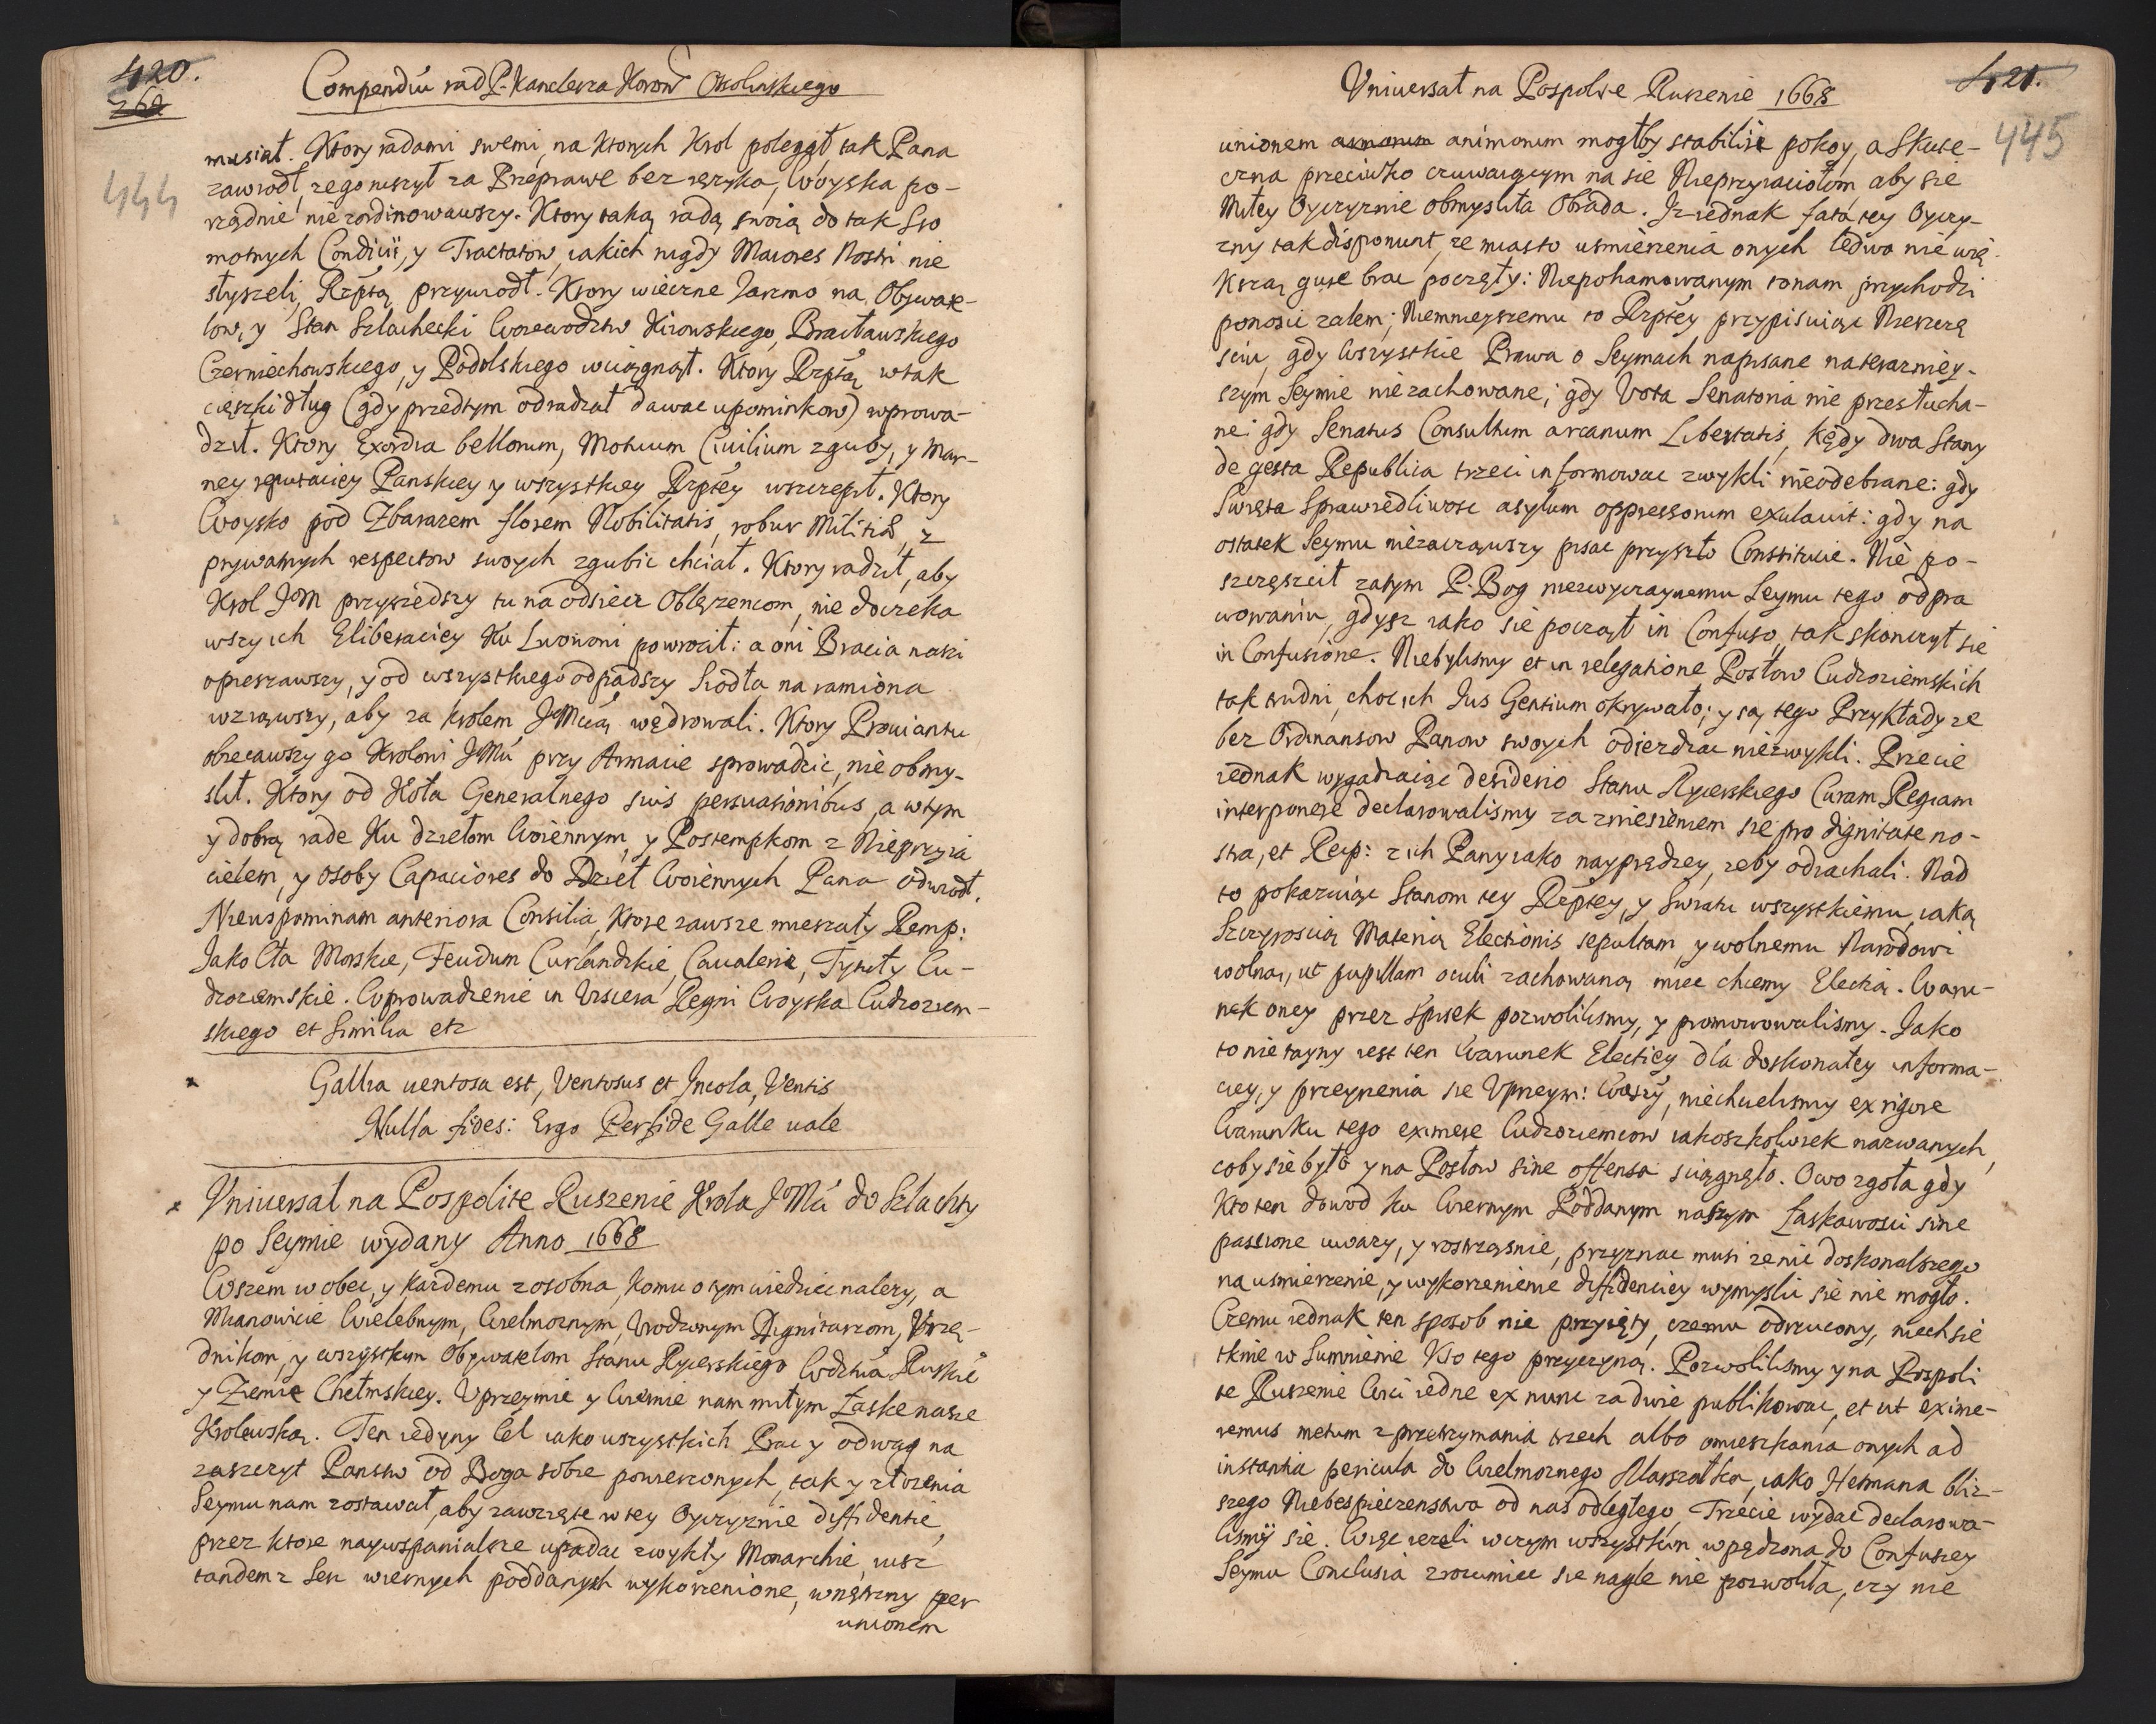 420.
269
Compendiũ rad P. Kanclerza Koron Ossolinskiego
444
musiał. Ktory radami swemi, na ktorych Krol polegał, tak Pana
zawiodł, ze go ruszył za Przeprawe bez ięzyka, Woyska po-
rządnie nie zordinowawszy. Ktory taką radą swoią do tak sro
motnych Condicii, y Tractatow, iakich nigdy Maiores Nostri nie
słyszeli, Rzptą przywiodł. Ktory wieczne Jarzmo na Obywate-
low, y Stan Szlachecki Woiewodztw Kiiowskiego, Bracławskiego
Czerniechowskiego, y Podolskiego wciągnął. Ktory Rzptą wtak
cięszki dług (gdy przedtym odradzał dawac upominkow) wprowa-
dził. Ktory Exordia bellorum, Motuum Ciuilium zguby, y mar-
ney reputaciey Panskiey y wszystkiey Rzptey wszczepił. Ktory
Woysko pod Zbarazem florem Nobilitatis, robur Militiæ, z
prywatnych respectow swoych zgubic chciał. Ktory radził, aby
Krol JoM przyszedszy tu na odsiecz Oblęzencom, nie doczeka
wszy ich Eliberaciey Ku Lwowoni powrocił: a oni Bracia naszi
opieszawszy, y od wszystkiego odpadszy siodła na ramiona
wziąwszy, aby za Krolem JoMcią wędrowali. Ktory Prowiantu
obiecawszy go Krolowi JoMu przy Armacie sprowadzic, nie obmy-
slił. Ktory od Koła Generalnego suis persuasionibus, a wtym
y dobrą rade Ku dziełom Woiennym, y Postempkom z Nieprzyia
cielem, y osoby Capaciores do Dzieł Woiennych Pana odwiodł.
Niewspominam anteriora Consilia, Ktore zawsze mieszały Remp:
Jako Cła Morskie, Feudum Curlandzkie, Caualerie, Tytuły Cu-
dzoziemskie. Wprowadzenie in Viscera Regni Woyska Cudzoziem-
skiego et similia etc
Gallia uentosa est, Ventosus et Incola, Ventis
Nulla fides: Ergo Perfide Galle uale
Vniuersał na Pospolite Ruszenie Krola JoMci do Szlachty
po Seymie wydany Anno 1668
Wszem wobec, y kazdemu zosobna, komu o tym wiedziec nalezy, a
Mianowicie Wielebnym, Wielmoznym, Vrodzonym Dignitarzom, Vrzę-
dnikom, y wszystkim Obywatelom Stanu Rycerskiego Wdztwa Ruskie
y Ziemie Chełmskiey. Vprzeymie y Wiernie nam miłym Łaske nasze
Krolewską. Ten iedyny Cel iako wszystkich Prac y odwag na
zaszczyt Panstw od Boga sobie powierzonych, tak y złozenia
Seymu nam zostawał, aby zawzięte w tey Oyczyznie diffidentie,
przez ktore naywspanialsze upadac zwykły Monarchie, iusz
tandem z serc wiernych poddanych wykorzenione, wnętrzny per
unionem
Vniuersał na Pospolite Ruszenie 1668
421.
445
unionem animorum animorum mogłby stabilire pokoy, a Skute-
czna przeciwko czuwaiącym na sie Nieprzyiaciołom, aby sie
Miłey Oyczyznie obmysliła Obrada. Iz iednak fata tey Oyczy-
zny tak disponunt, ze miasto usmierzenia onych ledwo nie wię-
kszą gure brac poczęły: Niepohamowanym tonam przychodzi
ponosic zalem; Niemnieyszemu to Rzptey przypisuiąc Nieszczę
sciu, gdy wszystkie Prawa o Seymach napisane na terazniey-
szym Seymie nie zachowane; gdy Vota Senatoria nie przesłucha-
ne: gdy Senatus Consultum arcanum Libertatis, kędy dwa Stany
de gesta Republica trzeci informowac zwykli nieodebrane: gdy
Swięta Sprawiedliwosc asylum oppressorum exulauit: gdy na
ostatek Seymu niezacząwszy pisac przyszło Constitucie. Nie po-
szczęscił zatym P. Bog niezwyczaynemu Seymu tego odpra
wowaniu, gdysz iako sie począł in Confuso, tak skonczył sie
in Confusione. Niebylismy et in relegatione Posłow Cudzoziemskich
tak trudni, choc ich Jus Gentium okrywało; y są tego Przykłady ze
bez Ordinansow Panow swoych odiezdzac niezwykli. Przecie
iednak wygadzaiąc desiderio Stanu Rycerskiego Curam Regiam
interponere declarowalismy za zniesieniem sie pro dignitate no-
stra, et Reip: z ich Pany iako nayprędzey, zeby odiachali. Nad
to pokazuiąc Stanom tey Rzptey, y Swiatu wszystkiemu, iaką
Szczyrością Materią Electionis sepultam, y wolnemu Narodowi
wolną, ut pupillam oculi zachowaną miec chcemy Elecią. Waru-
nek oney przez Spisek pozwolilismy, y promowowalismy. Jako
to nie tayny iest ten Warunek Electiey dla doskonałey informa-
ciey, y przeyrzenia sie Vprzeym: Waszy, niechcielismy ex rigore
Warunku tego eximere Cudzoziemcow iakoszkolwiek nazwanych,
coby sie było y na Posłow sine offensa sciągnęło. Owo zgoła gdy
kto ten dowod ku Wiernym Poddanym naszym Łaskawosci sine
passione uwazy, y rostrząsnie, przyznac musi ze nic doskonalszego
na usmierzenie, y wykorzenienie diffidenciey wymyslic sie nie mogło.
Czemu iednak ten sposob nie przyięty, czemu odrzucony, niech sie
tknie w Sumnienie Kto tego przyczyną. Pozwolilismy y na Pospoli
te Ruszenie Wici iedne ex nunc za dwie publikowac, et ut exime-
remus metum z przetrzymania trzech albo omieszkania onych ad
instantia pericula do Wielmoznego Marszałka, iako Hetmana bliz-
szego Niebespieczenstwa od nas odległego, Trzecie wydac declarowa-
lismÿ sie. Więc iezeli wczym wszystkim wpędzona do Confusiey
Seymu Conclusia zrozumiec sie nagle nie pozwoliła, czy nie